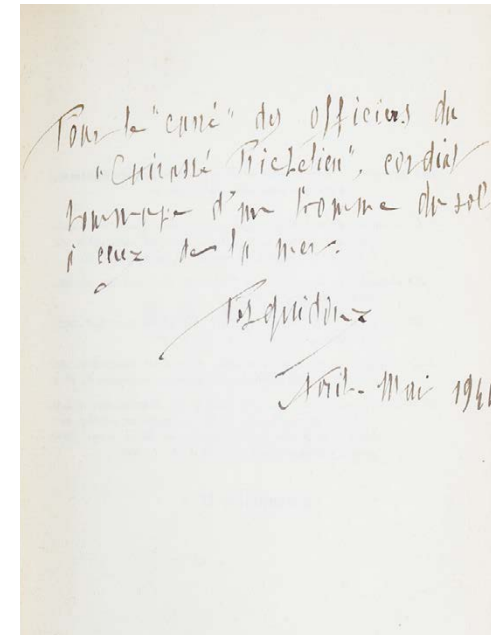 Pour le "carré" des officiers du
"Cuirassé Richelieu", cordial
hommage d'un homme du sol
à ceux de la mer.
Pesquidoux
Avril - Mai